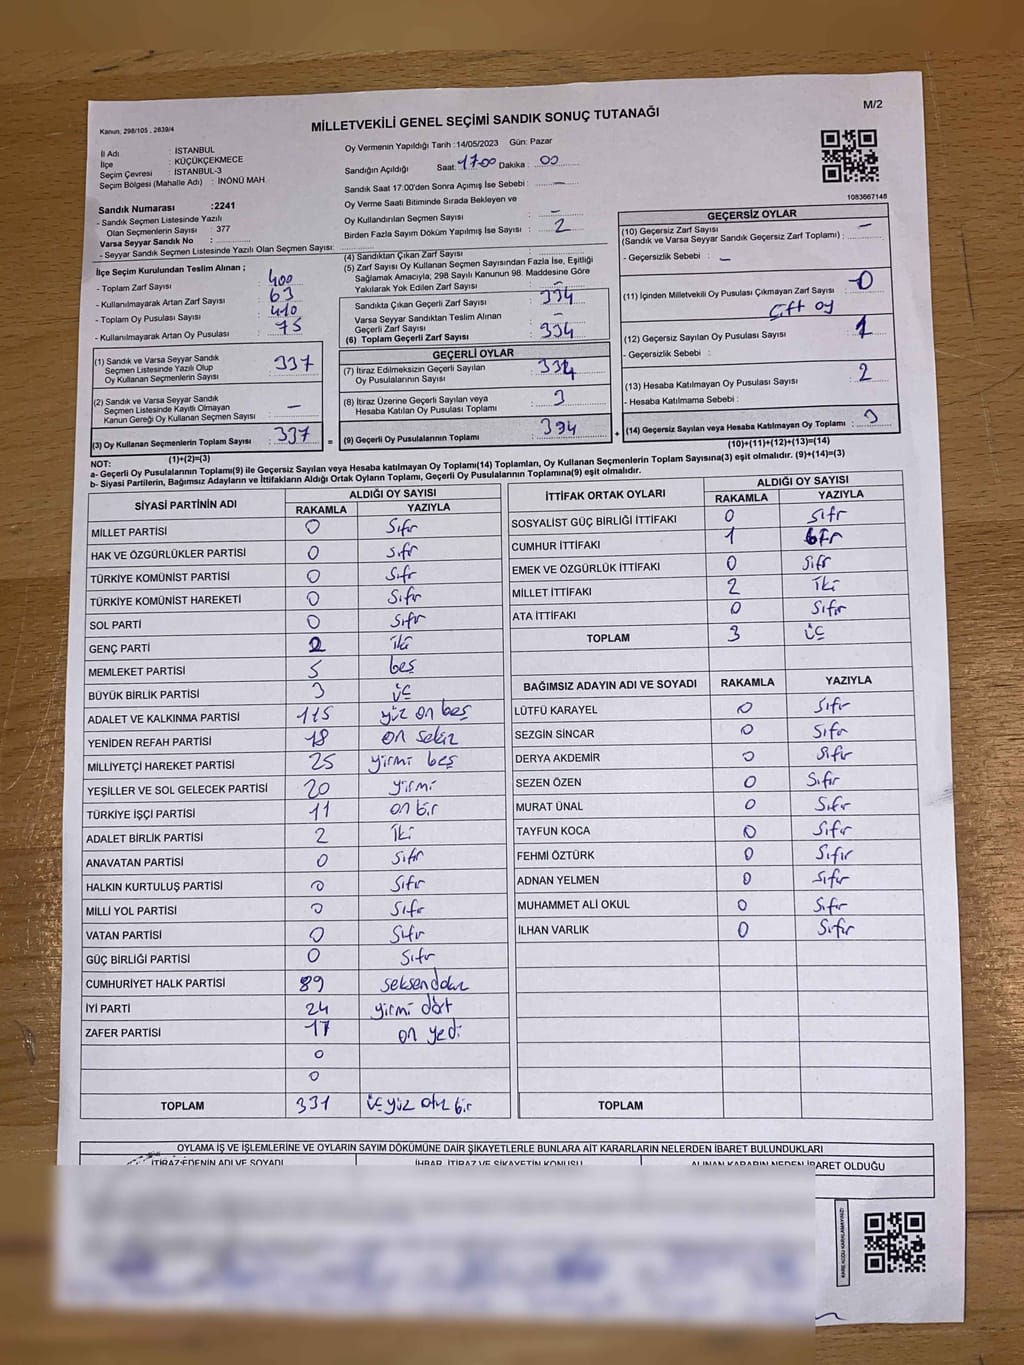 M/2
Kanun; 298/105 , 2839/4
MİLLETVEKİLİ GENEL SEÇİMİ SANDIK SONUÇ TUTANAĞI
İl Adı : İSTANBUL
İlçe : KÜÇÜKÇEKMECE
Seçim Çevresi : İSTANBUL-3
Seçim Bölgesi (Mahalle Adı) : İNÖNÜ MAH.
Sandık Numarası :2241
- Sandık Seçmen Listesinde Yazılı
Olan Seçmenlerin Sayısı : 377
Varsa Seyyar Sandık No :
- Seyyar Sandık Seçmen Listesinde Yazılı Olan Seçmen Sayısı:
Oy Vermenin Yapıldığı Tarih :14/05/2023 Gün: Pazar
Sandığın Açıldığı Saat: 17:00 Dakika : 00
Sandık Saat 17:00'den Sonra Açımış İse Sebebi : -
Oy Verme Saati Bitiminde Sırada Bekleyen ve
Oy Kullandırılan Seçmen Sayısı : -
Birden Fazla Sayım Döküm Yapılmış İse Sayısı : 2
1083667148
İlçe Seçim Kurulundan Teslim Alınan ;
- Toplam Zarf Sayısı : 400
- Kullanılmayarak Artan Zarf Sayısı : 63
- Toplam Oy Pusulası : 410
- Kullanılmayarak Artan Oy Pusulası : 75
(1) Sandık ve Varsa Seyyar Sandık
Seçmen Listesinde Yazılı Olup
Oy Kullanan Seçmenlerin Sayısı : 337
(2) Sandık ve Varsa Seyyar Sandık
Seçmen Listesinde Kayıtlı Olmayan
Kanun Gereği Oy Kullanan Seçmen Sayısı : -
(3) Oy Kullanan Seçmenlerin Toplam Sayısı : 337
(1)+(2)=(3)
(4) Sandıktan Çıkan Zarf Sayısı :
(5) Zarf Sayısı Oy Kullanan Seçmen Sayısından Fazla İse, Eşitliği
Sağlamak Amacıyla; 298 Sayılı Kanunun 98. Maddesine Göre
Yakılarak Yok Edilen Zarf Sayısı : -
Sandıkta Çıkan Geçerli Zarf Sayısı : 334
Varsa Seyyar Sandıktan Teslim Alınan
Geçerli Zarf Sayısı : -
(6) Toplam Geçerli Zarf Sayısı : 334
GEÇERLİ OYLAR
(7) İtiraz Edilmeksizin Geçerli Sayılan
Oy Pusulalarının Sayısı : 331
(8) İtiraz Üzerine Geçerli Sayılan veya
Hesaba Katılan Oy Pusulası Toplamı : 3
= (9) Geçerli Oy Pusulalarının Toplamı : 334
GEÇERSİZ OYLAR
(10) Geçersiz Zarf Sayısı
(Sandık ve Varsa Seyyar Sandık Geçersiz Zarf Toplamı) : -
- Geçersizlik Sebebi : -
(11) İçinden Milletvekili Oy Pusulası Çıkmayan Zarf Sayısı : 0
Çift oy
(12) Geçersiz Sayılan Oy Pusulası Sayısı : 1
- Geçersizlik Sebebi :
(13) Hesaba Katılmayan Oy Pusulası Sayısı : 2
- Hesaba Katılmama Sebebi :
+ (14) Geçersiz Sayılan veya Hesaba Katılmayan Oy Toplamı : 3
(10)+(11)+(12)+(13)=(14)
NOT:
a- Geçerli Oy Pusulalarının Toplamı(9) ile Geçersiz Sayılan veya Hesaba katılmayan Oy Toplamı(14) Toplamları, Oy Kullanan Seçmenlerin Toplam Sayısına(3) eşit olmalıdır. (9)+(14)=(3)
b- Siyasi Partilerin, Bağımsız Adayların ve İttifakların Aldığı Ortak Oyların Toplamı, Geçerli Oy Pusulalarının Toplamına(9) eşit olmalıdır.
SİYASİ PARTİNİN ADI ALDIĞI OY SAYISI
RAKAMLA YAZIYLA
MİLLET PARTİSİ 0 Sıfır
HAK VE ÖZGÜRLÜKLER PARTİSİ 0 Sıfır
TÜRKİYE KOMÜNİST PARTİSİ 0 Sıfır
TÜRKİYE KOMÜNİST HAREKETİ 0 Sıfır
SOL PARTİ 0 Sıfır
GENÇ PARTİ 2 iki
MEMLEKET PARTİSİ 5 beş
BÜYÜK BİRLİK PARTİSİ 3 üç
ADALET VE KALKINMA PARTİSİ 115 yüz on beş
YENİDEN REFAH PARTİSİ 18 on sekiz
MİLLİYETÇİ HAREKET PARTİSİ 25 yirmi beş
YEŞİLLER VE SOL GELECEK PARTİSİ 20 yirmi
TÜRKİYE İŞÇİ PARTİSİ 11 on bir
ADALET BİRLİK PARTİSİ 2 iki
ANAVATAN PARTİSİ 0 Sıfır
HALKIN KURTULUŞ PARTİSİ 0 Sıfır
MİLLİ YOL PARTİSİ 0 Sıfır
VATAN PARTİSİ 0 Sıfır
GÜÇ BİRLİĞİ PARTİSİ 0 Sıfır
CUMHURİYET HALK PARTİSİ 89 seksen dokuz
İYİ PARTİ 24 yirmi dört
ZAFER PARTİSİ 17 on yedi
0
0
TOPLAM 331 üç yüz otuz bir
İTTİFAK ORTAK OYLARI ALDIĞI OY SAYISI
RAKAMLA YAZIYLA
SOSYALİST GÜÇ BİRLİĞİ İTTİFAKI 0 Sıfır
CUMHUR İTTİFAKI 1 bir
EMEK VE ÖZGÜRLÜK İTTİFAKI 0 Sıfır
MİLLET İTTİFAKI 2 iki
ATA İTTİFAKI 0 Sıfır
TOPLAM 3 üç
BAĞIMSIZ ADAYIN ADI VE SOYADI RAKAMLA YAZIYLA
LÜTFÜ KARAYEL 0 Sıfır
SEZGİN SİNCAR 0 Sıfır
DERYA AKDEMİR 0 Sıfır
SEZEN ÖZEN 0 Sıfır
MURAT ÜNAL 0 Sıfır
TAYFUN KOCA 0 Sıfır
FEHMİ ÖZTÜRK 0 Sıfır
ADNAN YELMEN 0 Sıfır
MUHAMMET ALİ OKUL 0 Sıfır
İLHAN VARLIK 0 Sıfır
TOPLAM
OYLAMA İŞ VE İŞLEMLERİNE VE OYLARIN SAYIM DÖKÜMÜNE DAİR ŞİKAYETLERLE BUNLARA AİT KARARLARIN NELERDEN İBARET BULUNDUKLARI
İTİRAZ EDENİN ADI VE SOYADI İHBAR, İTİRAZ VE ŞİKAYETİN KONUSU ALINAN KARARIN NEDEN İBARET OLDUĞU
KAREKODU KARALAMAYINIZ!